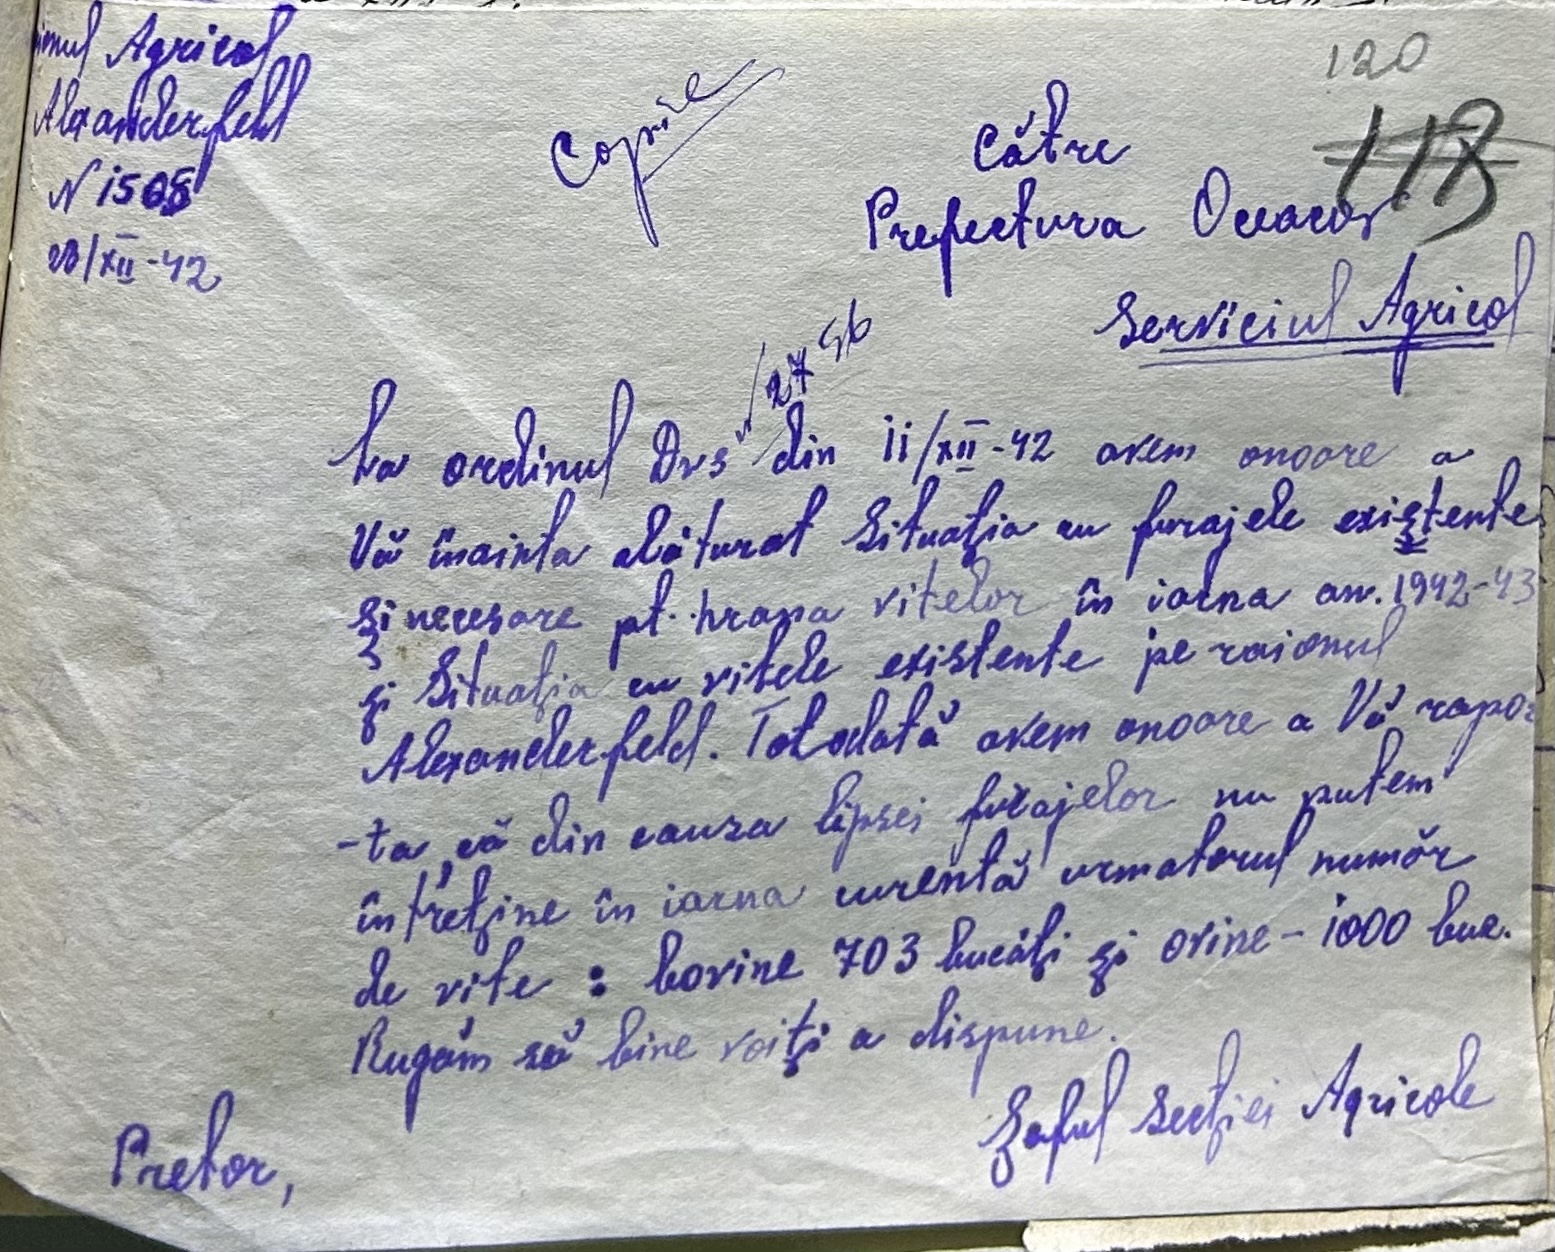 ionul Agricol
Alexanderfeld
N 1508
/XII-42
Copie
120
118
Către
Prefectura Oceacov
Serviciul Agricol
La ordinul Dvs N 12756 din 11/XII-42 avem onoare a
Vă înainta alăturat Situația cu furajele existente
și necesare pt. hrana vitelor în iarna an. 1942-43
și Situația cu vitele existente pe raionul
Alexanderfeld. Totodată avem onoare a Vă rapor
-ta, că din cauza lipsei furajelor nu putem
întreține în iarna curentă urmatorul număr
de vite : bovine 703 bucăți și ovine - 1000 buc.
Rugăm să bine voiți a dispune.
Șeful Secției Agricole
Pretor,